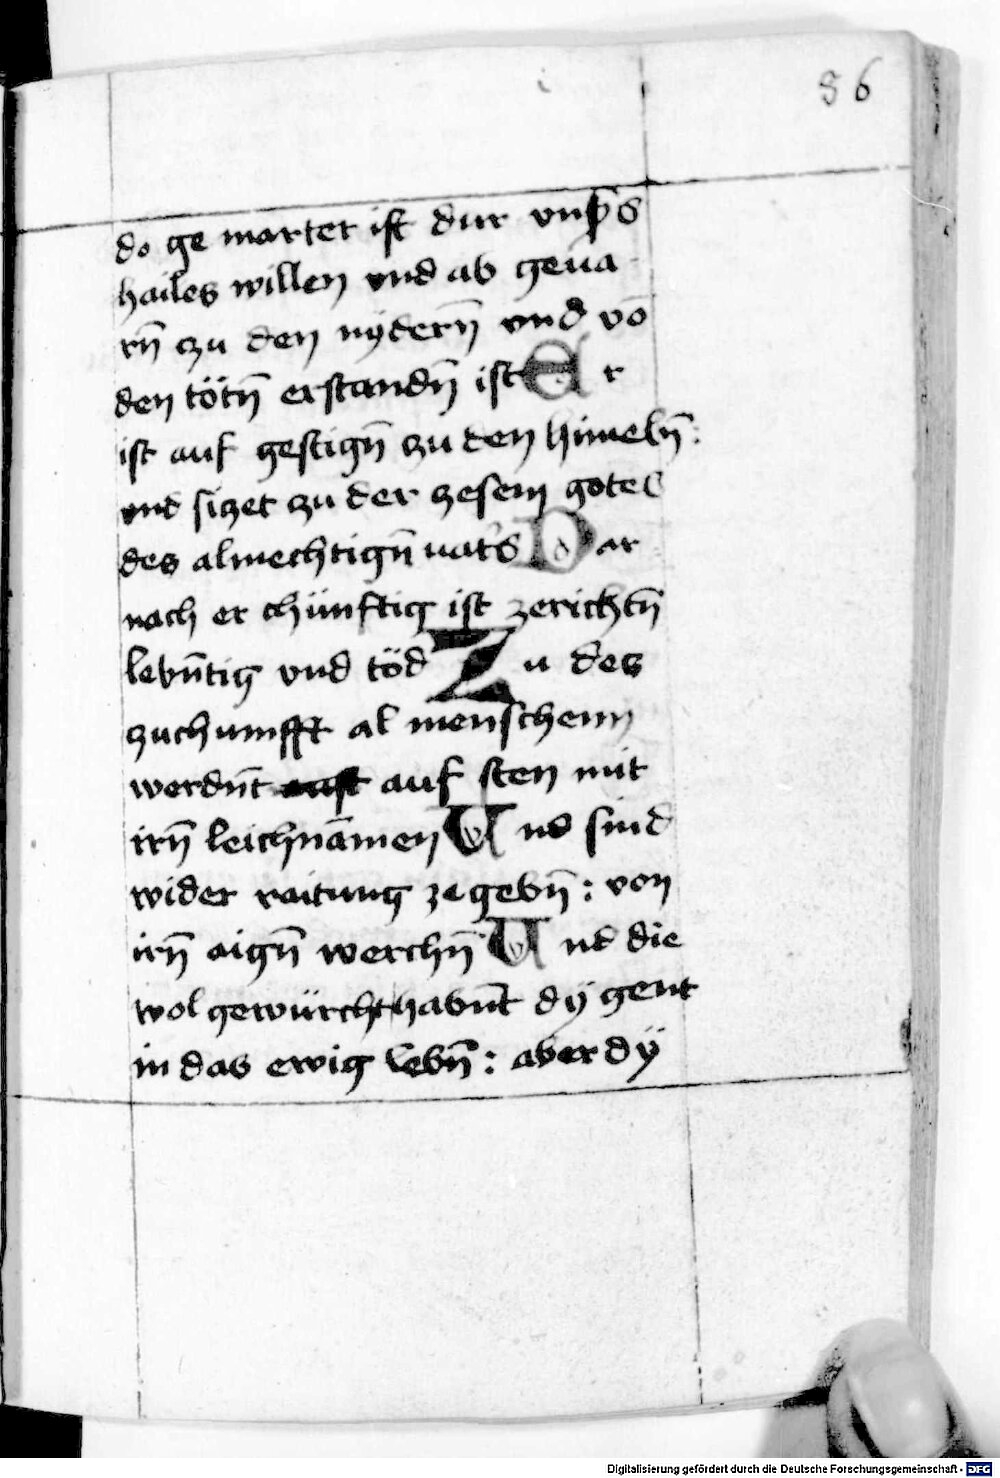 86
do ge marter ist dur vnsˢs
hailes willen vnd ab geua
rn̄ zu den nÿdern̄ vnd vō
den tötn̄ erstandn̄ ist Er
ist auf gestign̄ zu den himeln̄:
vnd siczet zu der zesem gotes
des almechtign̄ uat's Dar
nach er chünftig ist zerichtn̄
lebn̄tig vnd töd Zu des
zuchumfft al menschenn
werdn̄t auf sten mit
irn̄ leichnāmen Vnd sind
wider raitung ze gebn̄: von
irn̄ aign̄ werchn̄ Vnd die
wol gewürcht habn̄t dÿ gent
in das ewig lebn̄: aber dÿ
Digitalisierung gefördert durch die Deutsche Forschungsgemeinschaft - DFG